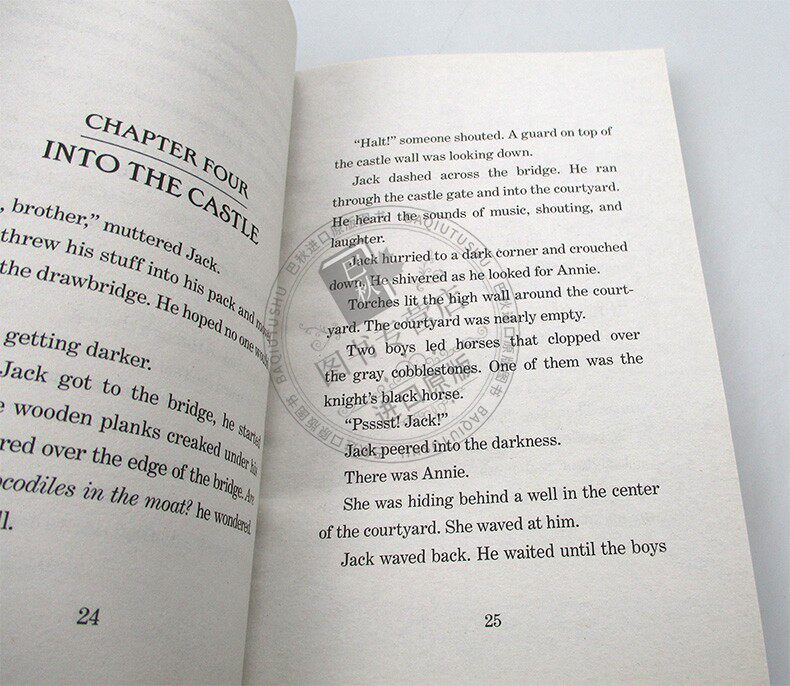 CHAPTER FOUR
INTO THE CASTLE
, brother,” muttered Jack.
threw his stuff into his pack and
the drawbridge. He hoped no one
getting darker.
Jack got to the bridge, he started
wooden planks creaked under his
over the edge of the bridge. Are
in the moat? he wondered.
24
“Halt!” someone shouted. A guard on top of
the castle wall was looking down.
Jack dashed across the bridge. He ran
through the castle gate and into the courtyard.
He heard the sounds of music, shouting, and
laughter.
Jack hurried to a dark corner and crouched
down. He shivered as he looked for Annie.
Torches lit the high wall around the court-
yard. The courtyard was nearly empty.
Two boys led horses that clopped over
the gray cobblestones. One of them was the
knight’s black horse.
“Psssst! Jack!”
Jack peered into the darkness.
There was Annie.
She was hiding behind a well in the center
of the courtyard. She waved at him.
Jack waved back. He waited until the boys
25
巴秋进口原版图书
BAQIUTUSHU
巴秋
图书专营店
进口原版
巴秋进口原版图书
BAQIUTUSHU